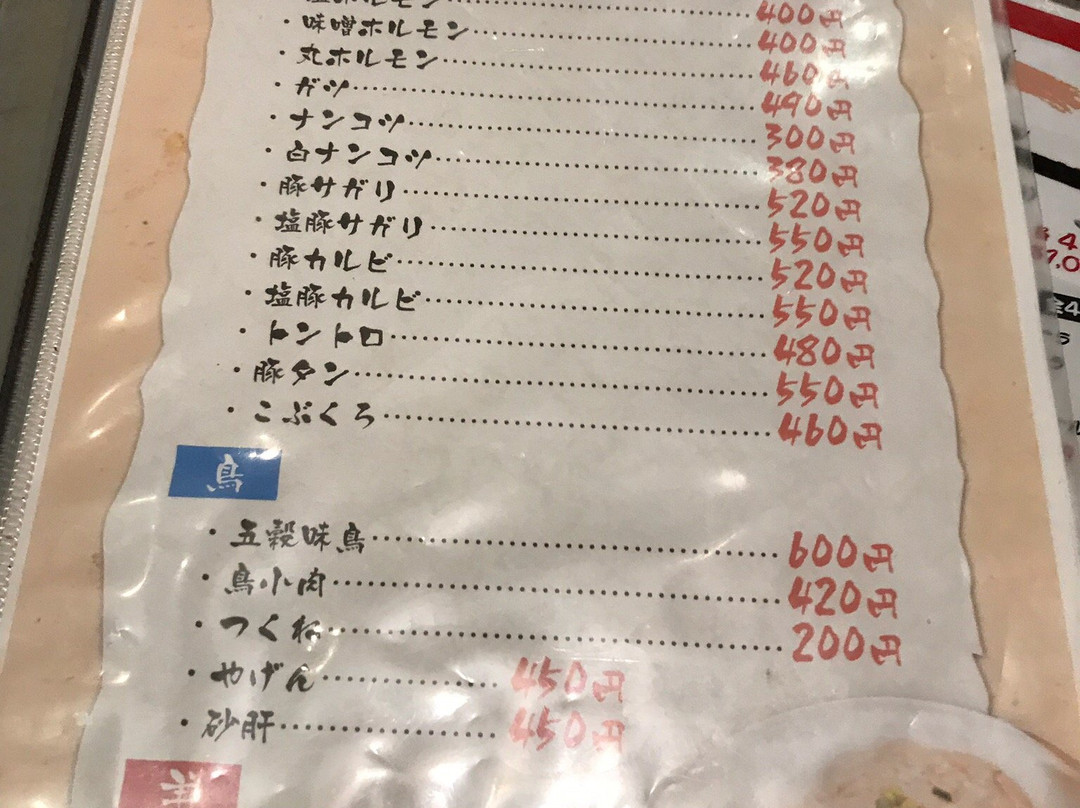 ホルモン 400円
・味噌ホルモン 400円
・丸ホルモン 460円
・ガツ 490円
・ナンコツ 300円
・白ナンコツ 380円
・豚サガリ 520円
・塩豚サガリ 550円
・豚カルビ 520円
・塩豚カルビ 550円
・トントロ 480円
・豚タン 550円
・こぶくろ 460円
鳥
・五穀味鳥 600円
・鳥小肉 420円
・つくね 200円
・やげん 450円
・砂肝 450円